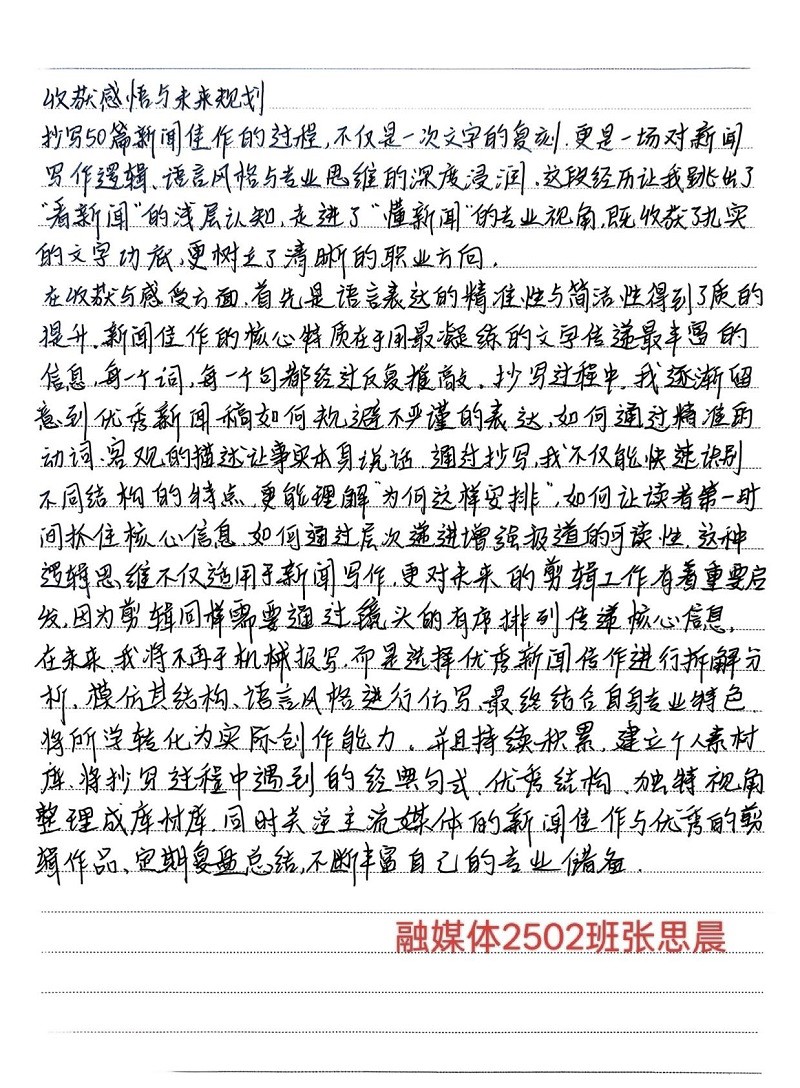 收获感悟与未来规划
抄写50篇新闻佳作的过程,不仅是一次文字的复刻.更是一场对新闻
写作逻辑、语言风格与专业思维的深度浸润.这段经历让我跳出了
“看新闻”的浅层认知,走进了“懂新闻”的专业视角,既收获了扎实
的文字功底,更树立了清晰的职业方向.
在收获与感受方面.首先是语言表达的精准性与简洁性得到了质的
提升.新闻佳作的核心特质在于用最凝练的文字传递最丰富的
信息,每一个词,每一个句都经过反复推敲.抄写过程中.我逐渐留
意到优秀新闻稿如何规避不严谨的表达,如何通过精准的
动词.客观的描述让事实本身说话.通过抄写,我不仅能快速识别
不同结构的特点.更能理解“为何这样安排”,如何让读者第一时
间抓住核心信息.如何通过层次递进增强报道的可读性.这种
逻辑思维不仅适用于新闻写作,更对未来的剪辑工作有着重要启
发,因为剪辑同样需要通过镜头的有序排列传递核心信息,
在未来,我将不再于机械报写,而是选择优秀新闻佳作进行拆解分
析.模仿其结构、语言风格进行仿写.最终结合自身专业特色
将所学转化为实际创作能力.并且持续积累,建立个人素材
库.将抄写过程中遇到的经典句式.优秀结构.独特视角
整理成库材库.同时关注主流媒体的新闻佳作与优秀的剪
辑作品、定期复盘总结,不断丰富自己的专业储备.
融媒体2502班张思晨